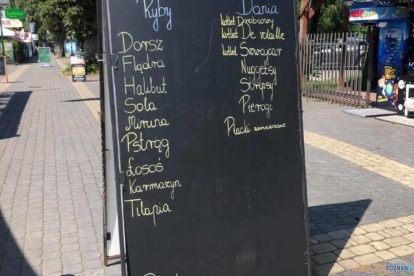 Ryby
Dorsz
Flądra
Halibut
Sola
Miruna
Pstrąg
Łosoś
Karmazyn
Tilapia
Dania
kotlet Drobiowy
kotlet De volaille
kotlet Szwajcar
Nuggetsy
Stripsy
Pierogi
Placki ziemniaczane